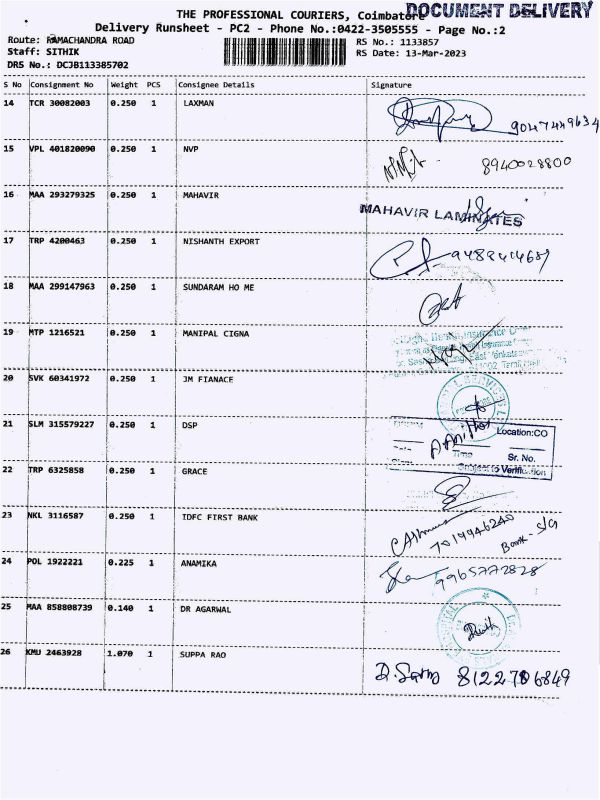 DOCUMENT DELIVERY
THE PROFESSIONAL COURIERS, Coimbatore
Delivery Runsheet - PC2 - Phone No.:0422-3505555 - Page No.:2
Route: RAMACHANDRA ROAD
RS No.: 1133857
Staff: SITHIK
RS Date: 13-Mar-2023
DRS No.: DCJB113385702
S No Consignment No Weight PCS Consignee Details Signature
14 TCR 30082003 0.250 1 LAXMAN
15 VPL 401820090 0.250 1 NVP 8940028800
16 MAA 293279325 0.250 1 MAHAVIR MAHAVIR LAMINATES
17 TRP 4200463 0.250 1 NISHANTH EXPORT
18 MAA 299147963 0.250 1 SUNDARAM HO ME
19 MTP 1216521 0.250 1 MANIPAL CIGNA
20 SVK 60341972 0.250 1 JM FIANACE
21 SLM 315579227 0.250 1 DSP
Location:CO
Time Sr. No.
Subject to Verification
22 TRP 6325858 0.250 1 GRACE
23 NKL 3116587 0.250 1 IDFC FIRST BANK
7019946240
Bank - S/G
24 POL 1922221 0.225 1 ANAMIKA 9965772828
25 MAA 858808739 0.140 1 DR AGARWAL
26 KMU 2463928 1.070 1 SUPPA RAO